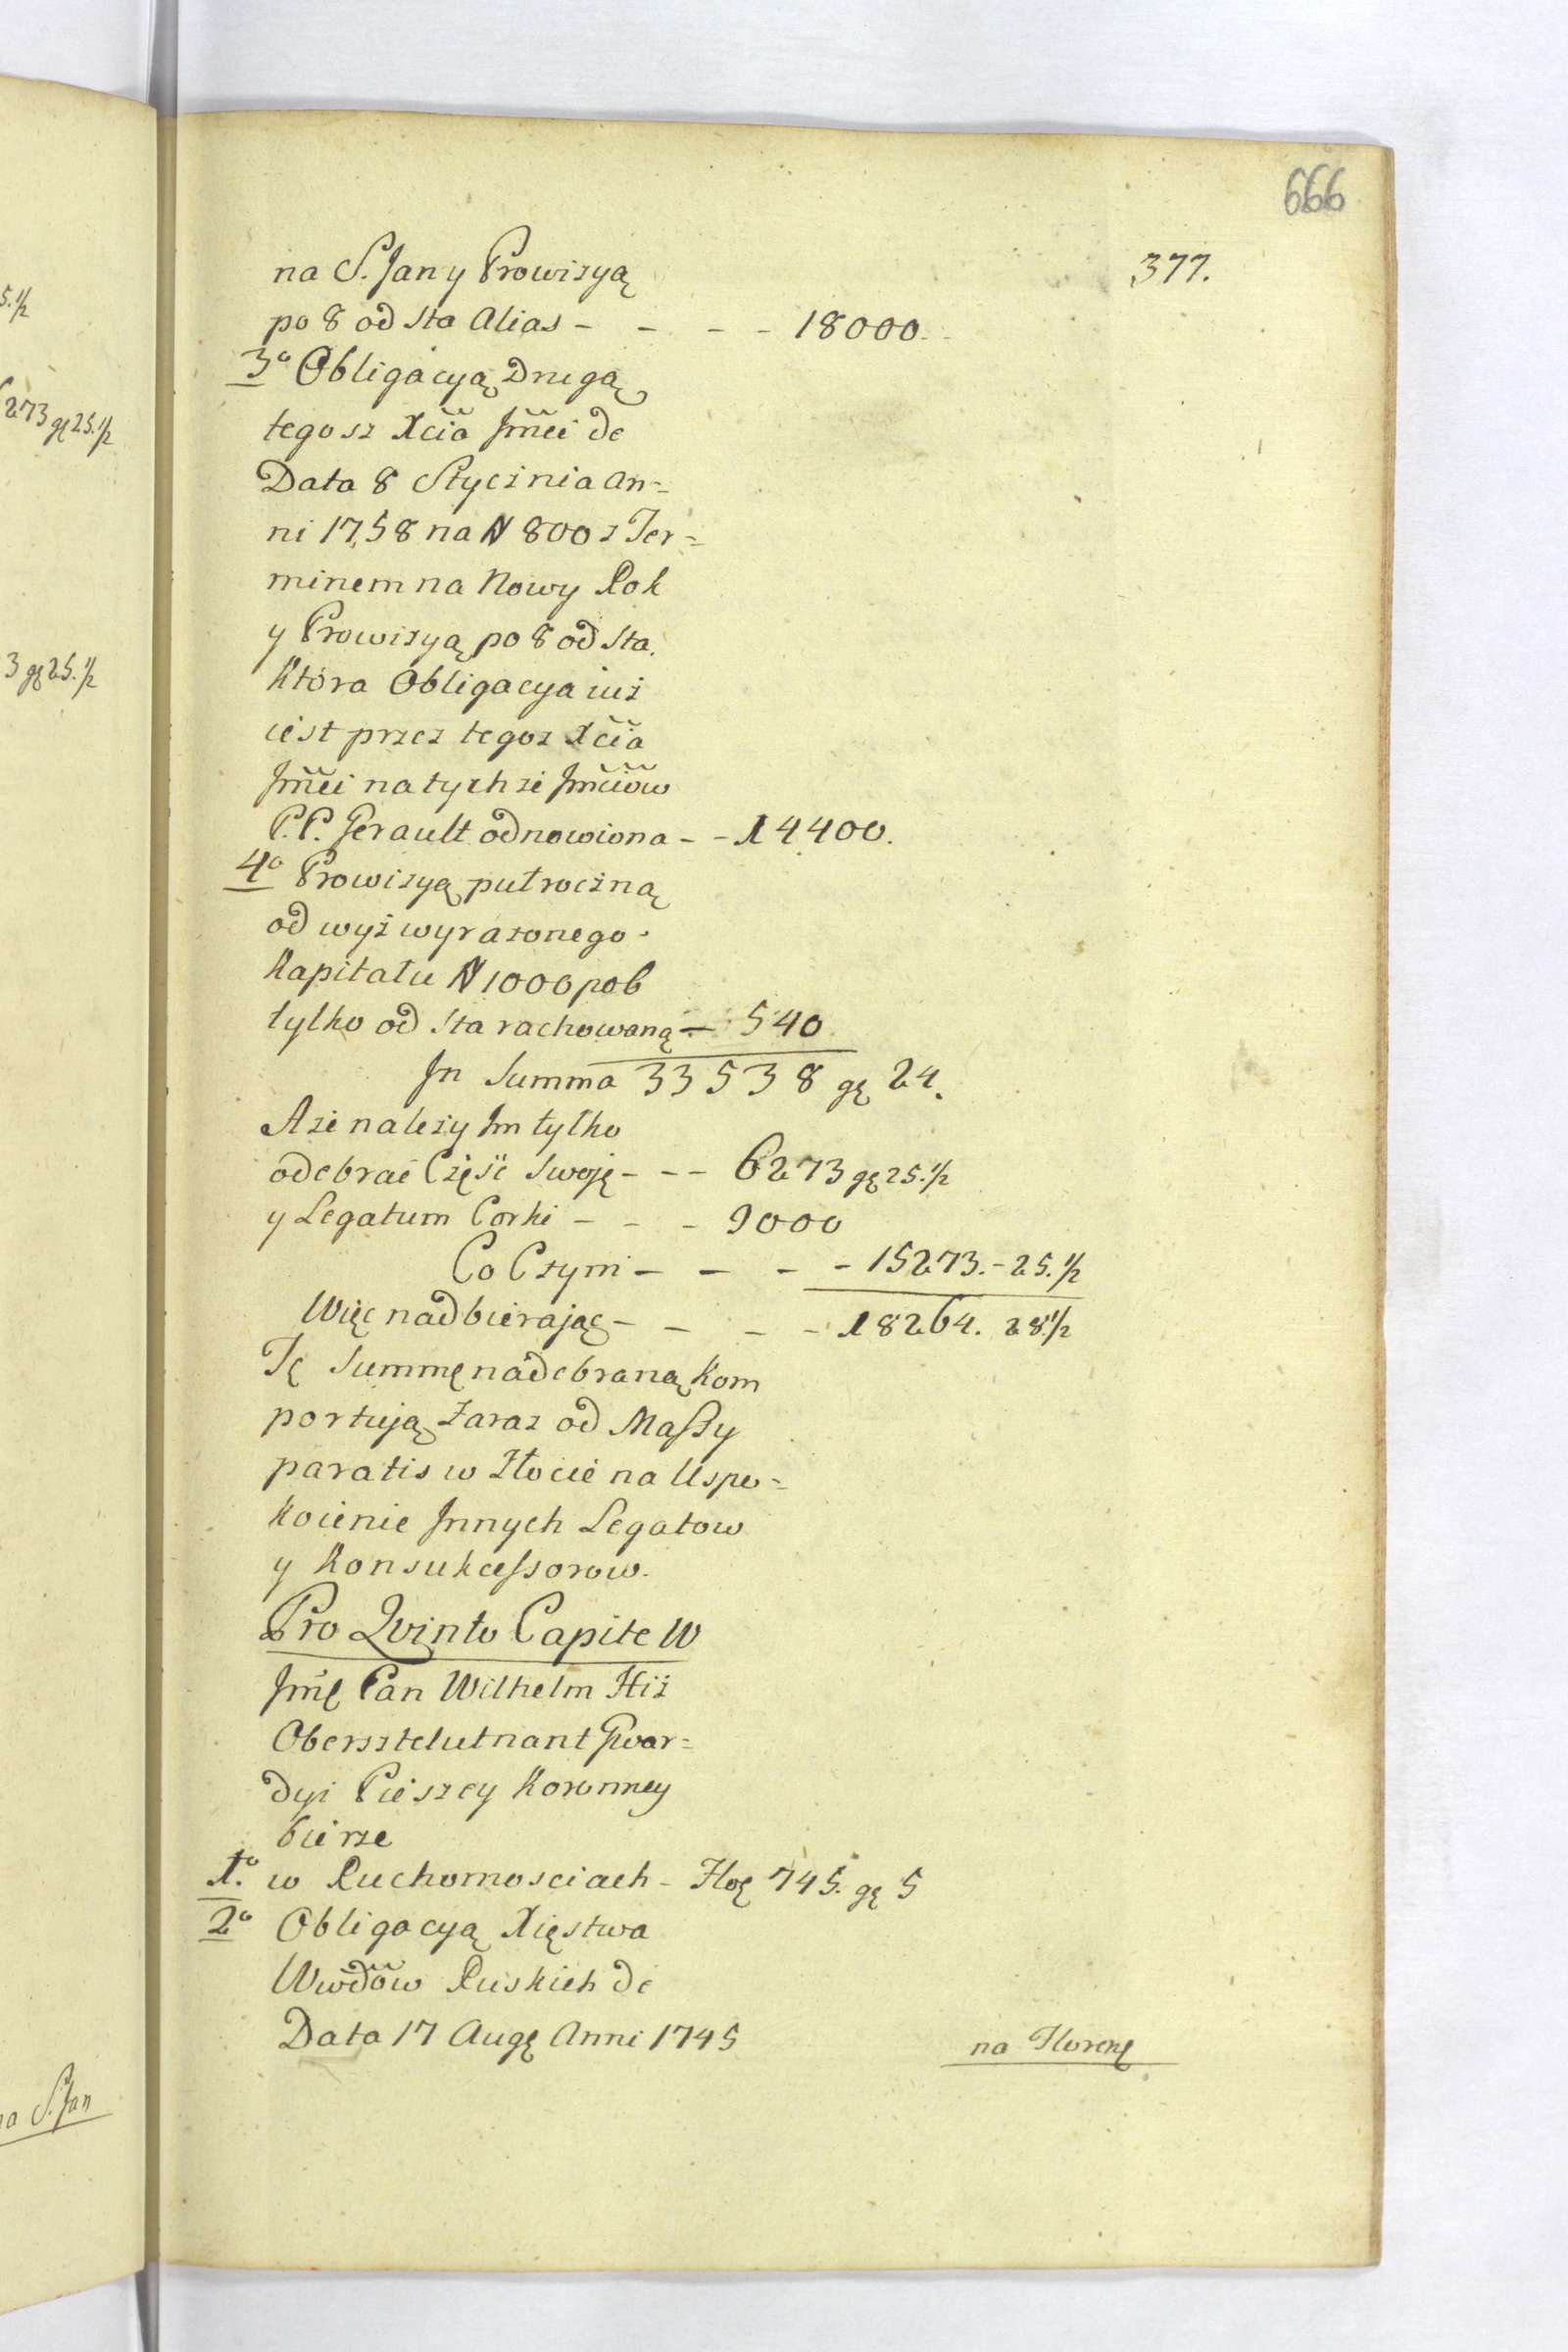 666
377.
na S. Jan y Prowizyą
po 8 od sta Alias - - - - 18000.
3º Obligacyą Drugą
tegosz Xcia Jmci de
Data 8 Stycznia An=
ni 1758 na # 800 z Ter=
minem na Nowy Rok
y Prowizyą po 8 od sta.
Która Obligacya iuż
iest przez tegoz Xcia
Jmci na tychże Jmciow
P.P. Gerault odnowiona - - 14400.
4º Prowizyą pułroczną
od wyż wyrazonego
Kapitału # 1000 po 6
tylko od sta rachowaną - 540
Jn Summa 33538 gę 24.
A że nalezy Jm tylko
odebrać Część swoję - - - 6273 gę 25.1/2
y Legatum Corki - - - 9000
Co Czyni - - - - 15273. - 25.1/2
Więc nadbierając - - - - 18264. 28 1/2
Tę Summę nadebraną kom
portują zaraz od Massy
paratis w Złocie na Uspo=
koienie Jnnych Legatow
y Konsukcessorow.
Pro Qvinto Capite W
Jmę Pan Wilhelm Hiż
Oberszteleutnant Gwar=
dyi Pieszey Koronney
bierze
1º. w Ruchomosciach - Floę 745. gę 5
2º Obligacyą Xięstwa
Wwdow Ruskich de
Data 17 Augę Anni 1745
na Florenę
5.1/2
6273 gę 25.1/2
3 gę 25.1/2
na S. Jan